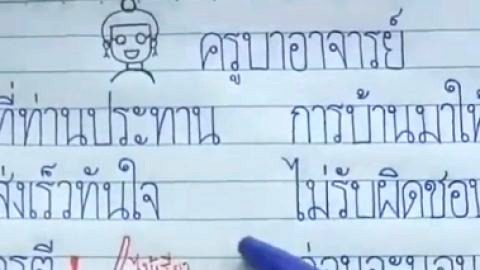 ครูบาอาจารย์
ที่ท่านประทาน การบ้านมาให้
ส่งเร็วทันใจ ไม่รับผิดชอบ